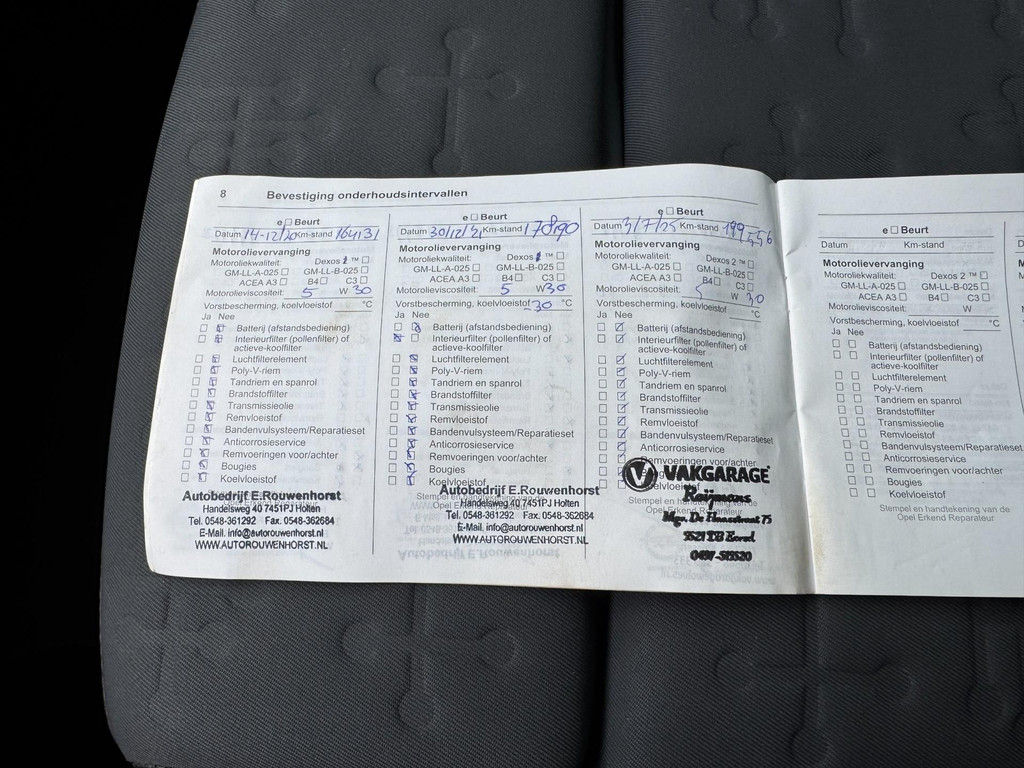 8 Bevestiging onderhoudsintervallen
e □ Beurt
Datum 14-12/20 Km-stand 164131
Motorolievervanging
Motoroliekwaliteit: Dexos 2 ™ □
GM-LL-A-025 □ GM-LL-B-025 □
ACEA A3 □ B4 □ C3 □
Motorolieviscositeit: 5 W 30
Vorstbescherming, koelvloeistof °C
Ja Nee
Batterij (afstandsbediening)
Interieurfilter (pollenfilter) of
actieve-koolfilter
Luchtfilterelement
Poly-V-riem
Tandriem en spanrol
Brandstoffilter
Transmissieolie
Remvloeistof
Bandenvulsysteem/Reparatieset
Anticorrosieservice
Remvoeringen voor/achter
Bougies
Koelvloeistof
Autobedrijf E.Rouwenhorst
Handelsweg 40 7451PJ Holten
Tel. 0548-361292 Fax. 0548-362684
E-Mail. info@autorouwenhorst.nl
WWW.AUTOROUWENHORST.NL
e □ Beurt
Datum 30/12/21 Km-stand 178190
Motorolievervanging
Motoroliekwaliteit: Dexos ™ □
GM-LL-A-025 □ GM-LL-B-025 □
ACEA A3 □ B4 □ C3 □
Motorolieviscositeit: 5 W 30
Vorstbescherming, koelvloeistof -30 °C
Ja Nee
Batterij (afstandsbediening)
Interieurfilter (pollenfilter) of
actieve-koolfilter
Luchtfilterelement
Poly-V-riem
Tandriem en spanrol
Brandstoffilter
Transmissieolie
Remvloeistof
Bandenvulsysteem/Reparatieset
Anticorrosieservice
Remvoeringen voor/achter
Bougies
Koelvloeistof
Stempel en handtekening van de
Autobedrijf E.Rouwenhorst
Handelsweg 40 7451PJ Holten
Tel. 0548-361292 Fax. 0548-362684
E-Mail. info@autorouwenhorst.nl
WWW.AUTOROUWENHORST.NL
e □ Beurt
Datum 3/7/25 Km-stand 199556
Motorolievervanging
Motoroliekwaliteit: Dexos 2 ™ □
GM-LL-A-025 □ GM-LL-B-025 □
ACEA A3 □ B4 □ C3 □
Motorolieviscositeit: 5 W 30
Vorstbescherming, koelvloeistof °C
Ja Nee
Batterij (afstandsbediening)
Interieurfilter (pollenfilter) of
actieve-koolfilter
Luchtfilterelement
Poly-V-riem
Tandriem en spanrol
Brandstoffilter
Transmissieolie
Remvloeistof
Bandenvulsysteem/Reparatieset
Anticorrosieservice
Remvoeringen voor/achter
Koelvloeistof
Stempel en handtekening van de
Opel Erkend Reparateur
VAKGARAGE
Raijmans
75
e □ Beurt
Datum Km-stand
Motorolievervanging
Motoroliekwaliteit: Dexos 2 ™ □
GM-LL-A-025 □ GM-LL-B-025 □
ACEA A3 □ B4 □ C3 □
Motorolieviscositeit: W
Vorstbescherming, koelvloeistof °C
Ja Nee
Batterij (afstandsbediening)
Interieurfilter (pollenfilter) of
actieve-koolfilter
Luchtfilterelement
Poly-V-riem
Tandriem en spanrol
Brandstoffilter
Transmissieolie
Remvloeistof
Bandenvulsysteem/Reparatieset
Anticorrosieservice
Remvoeringen voor/achter
Bougies
Koelvloeistof
Stempel en handtekening van de
Opel Erkend Reparateur